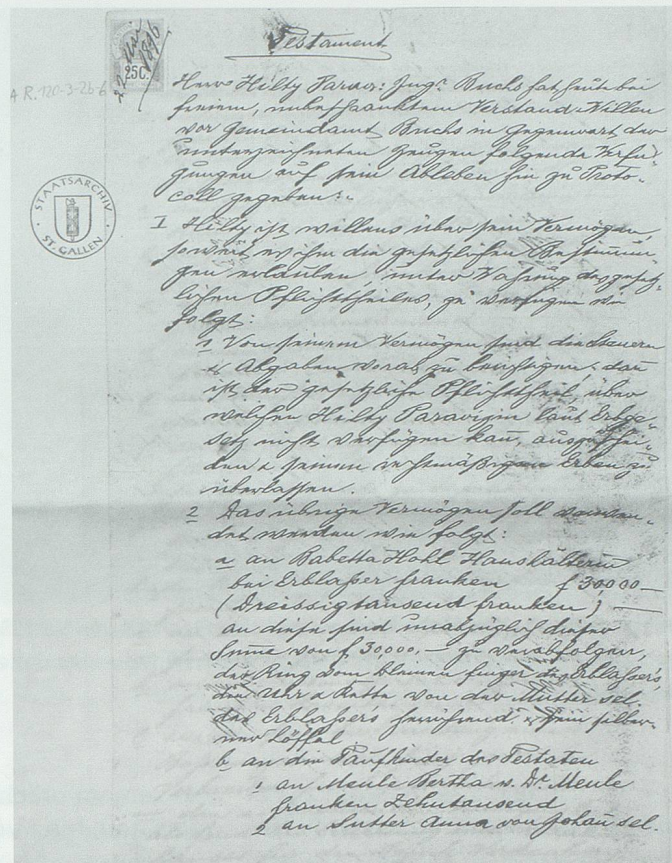 Testament
22 Mai 1896
25C.
A R. 120-3-2b-6
STAATSARCHIV
ST. GALLEN
Herr Hilty Parav: Ing. Buchs hat heute bei
freiem, unbeschränktem Verstand & Willen
vor Gemeindamt Buchs in Gegenwart der
unterzeichneten Zeugen folgende Verfü-
gungen auf sein Ableben hin zu Proto-
coll gegeben:
I Hilty ist willens über sein Vermögen,
soweit es ihm die gesetzlichen Bestimmun-
gen erlauben, unter Wahrung des gesetz-
lichen Pflichttheiles, zu verfügen wie
folgt:
1 Von seinem Vermögen sind die Steuern
& Abgaben voraus zu berichtigen; dan
ist der gesetzliche Pflichttheil, über
welchen Hilty Paravizin laut Erbge-
setz nicht verfügen kan, auszuschei-
den & seinen rechtmäßigen Erben zu
überlassen.
2 Das übrige Vermögen soll verwen-
det werden wie folgt:
a an Babetta Hohl Haushälterin
bei Erblaßer franken f 30,000 —
(Dreissigtausend franken)
an diese sind unabzüglich dieser
Summe von f. 30000,— zu verabfolgen,
der Ring vom kleinen finger des Erblaßer's,
die Uhr & Kette von der Mutter sel.
des Erblaßer's herrührend & sein silber-
ner Löffel.
b an die Taufkinder des Testaten
1 an Meule Bertha v. Dr. Meule
franken Zehntausend
2 an Sutter Anna von Johan sel.